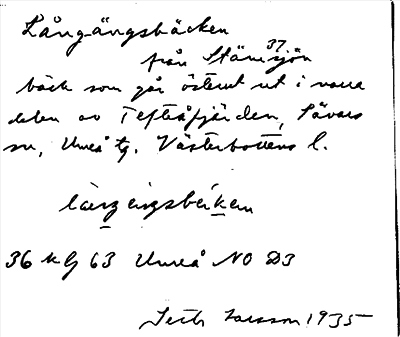 Långängsbäcken
från Stämsjön 37
bäck som går österut ut i norra
delen av Tefteåfjärden, Sävars
sn, Umeå tg. Västerbottens l.
36 klj 63 Umeå NO D3
Seth Larsson 1935